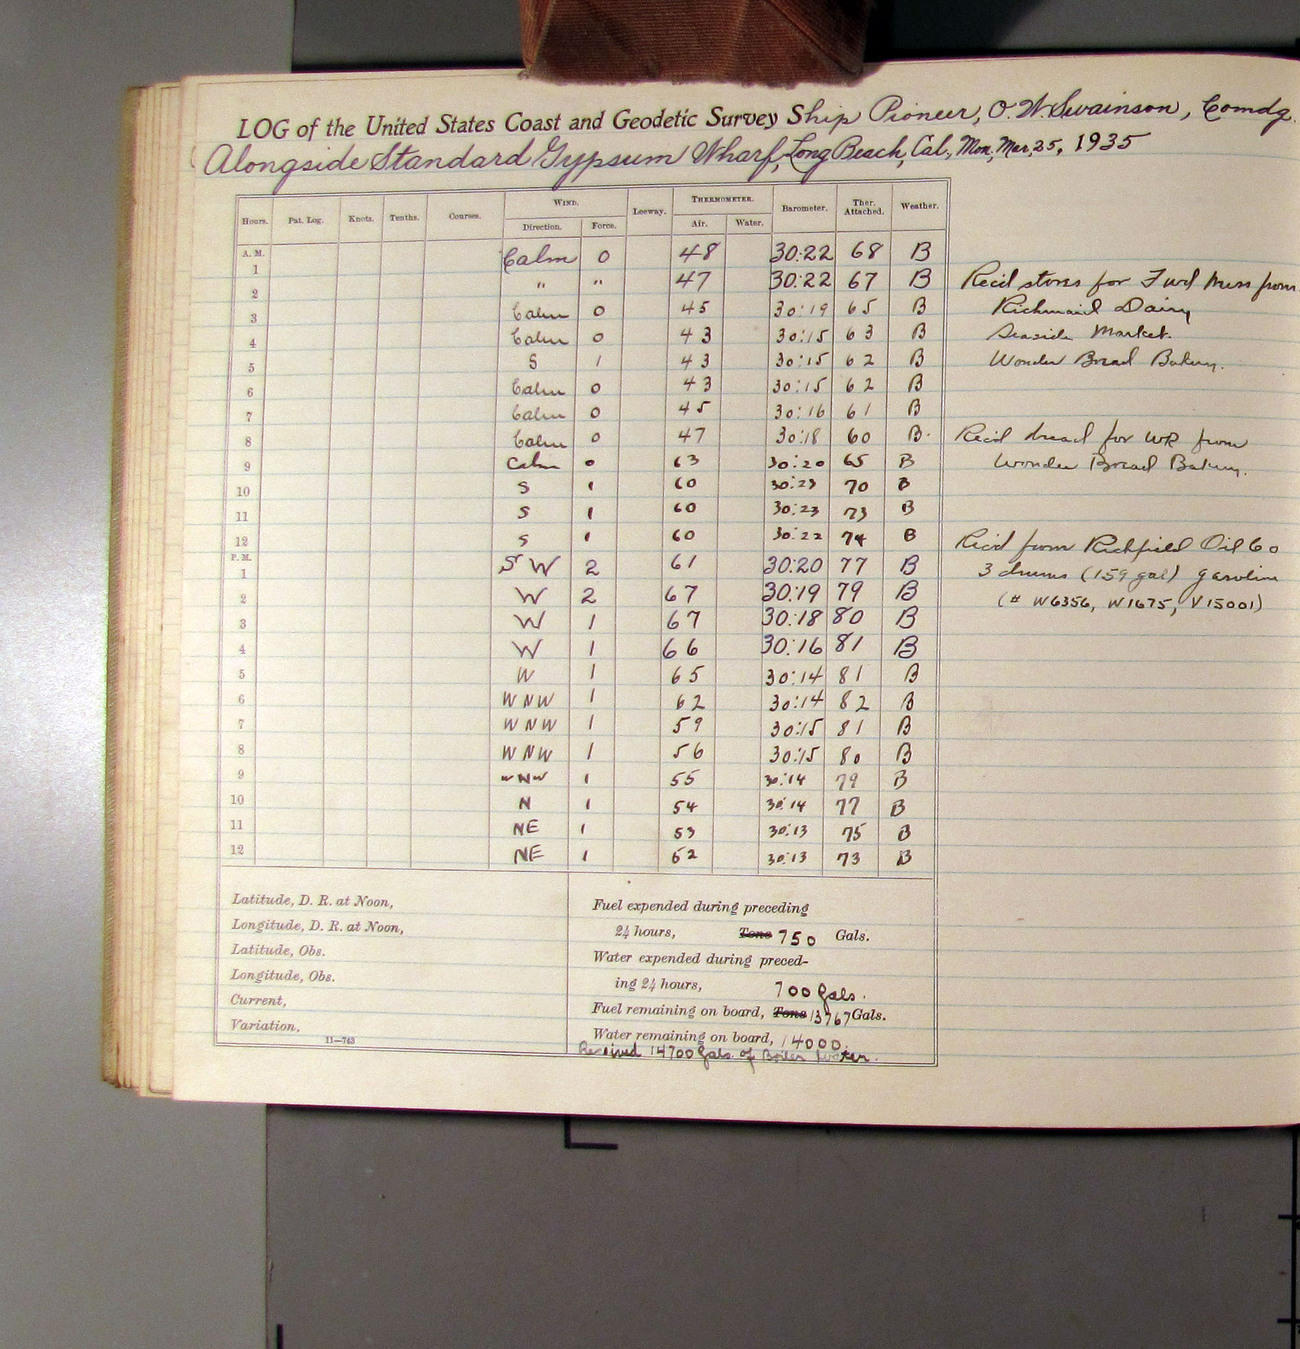 LOG of the United States Coast and Geodetic Survey Ship Pioneer, O. W. Swainson, Comdg.
Alongside Standard Gypsum Wharf, Long Beach, Cal., Mon, Mar, 25, 1935
Hours. Pat. Log. Knots. Tenths. Courses. WIND. Leeway. THERMOMETER. Barometer. Ther. Attached. Weather.
Direction. Force. Air. Water.
A. M.
1 Calm 0 48 30:22 68 B
2 " " 47 30:22 67 B
3 Calm 0 45 30:19 65 B
4 Calm 0 43 30:15 63 B
5 S 1 43 30:15 62 B
6 Calm 0 43 30:15 62 B
7 Calm 0 45 30:16 61 B
8 Calm 0 47 30:18 60 B.
9 Calm 0 63 30:20 65 B
10 S 1 60 30:23 70 B
11 S 1 60 30:23 73 B
12 S 1 60 30:22 74 B
P. M.
1 SW 2 61 30:20 77 B
2 W 2 67 30:19 79 B
3 W 1 67 30:18 80 B
4 W 1 66 30:16 81 B
5 W 1 65 30:14 81 B
6 WNW 1 62 30:14 82 B
7 WNW 1 59 30:15 81 B
8 WNW 1 56 30:15 80 B
9 WNW 1 55 30:14 79 B
10 N 1 54 30:14 77 B
11 NE 1 53 30:13 75 B
12 NE 1 52 30:13 73 B
Rec'd stores for Fwd Mess from
Richmaid Dairy
Seaside Market.
Wonder Bread Bakery.
Rec'd bread for WR from
Wonder Bread Bakery.
Rec'd from Richfield Oil Co
3 drums (159 gal) gasoline
(# W6356, W1675, V15001)
Latitude, D. R. at Noon,
Longitude, D. R. at Noon,
Latitude, Obs.
Longitude, Obs.
Current,
Variation,
11—743
Fuel expended during preceding
24 hours, Tons 750 Gals.
Water expended during preced-
ing 24 hours, 700 Gals.
Fuel remaining on board, Tons 13767 Gals.
Water remaining on board, 14000.
Received 14700 Gals. of Boiler Water.